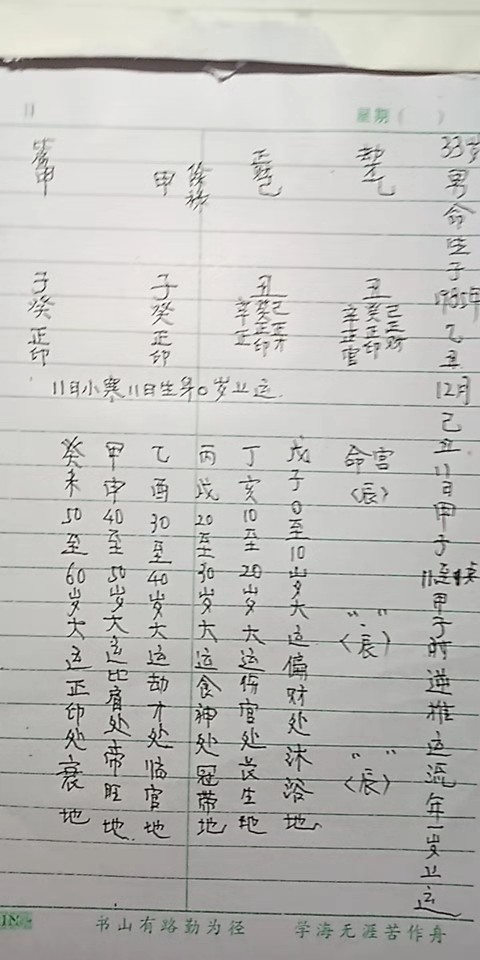 11
星期（ ）
33岁男命生于1985年乙丑12月己丑11日甲子11至 甲子时逆推运流年一岁上运
劫才乙
丑
己正财
癸正印
辛正官
命宫〈辰〉
" " 〈辰〉
" " 〈辰〉
正财己
丑
己正才
癸正印
辛正
甲
子
癸
正印
甲
子
癸
正印
11日小寒11日生 0岁上运
戊子0至10岁大运偏财处沐浴地
丁亥10至20岁大运伤官处长生地
丙戌20至30岁大运食神处冠带地
乙酉30至40岁大运劫才处临官地
甲申40至50岁大运比肩处帝旺地
癸未50至60岁大运正印处衰地
书山有路勤为径
学海无涯苦作舟